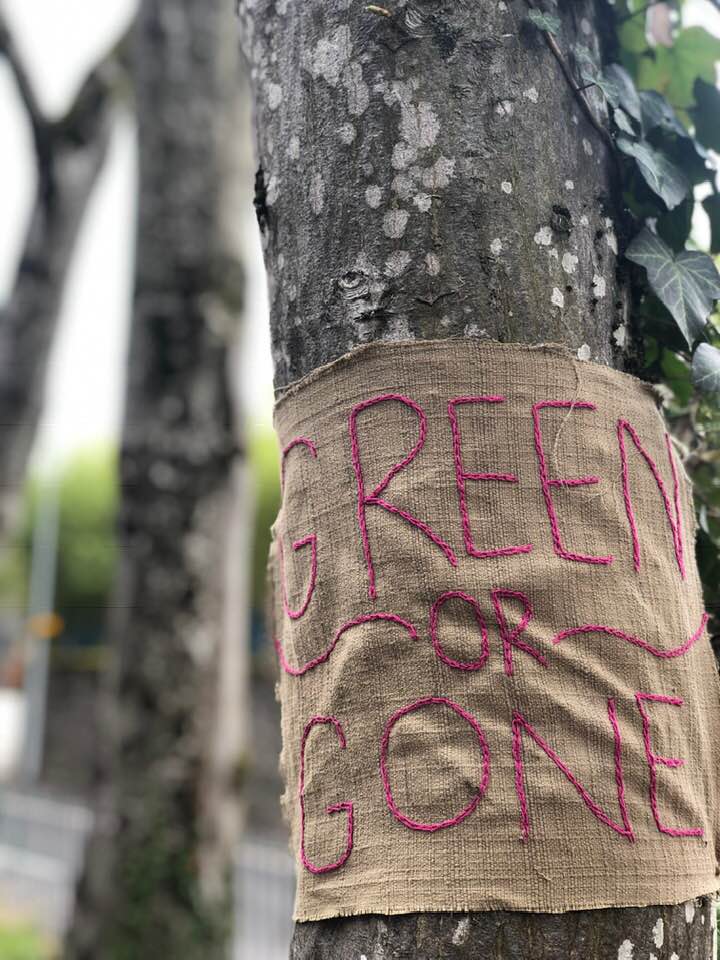 GREEN
OR
GONE